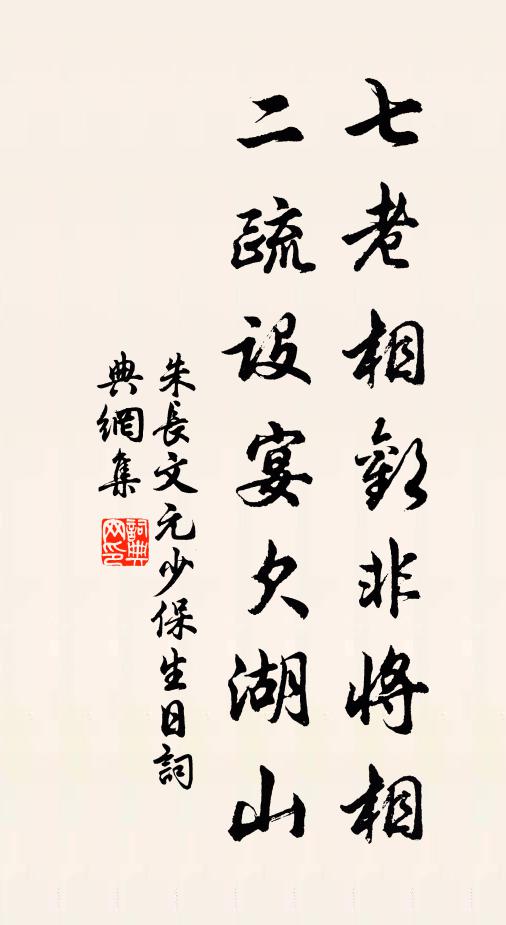 七老相歡非將相
二疏設宴欠湖山
朱長文元少保生日詞
典網集
詞典網印